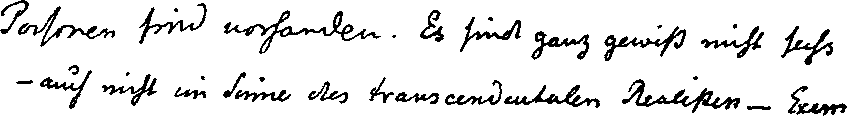 Personen sind vorhanden. Es sind ganz gewiß nicht sechs
– auch nicht im Sinne des transcendentalen Realisten – Exem